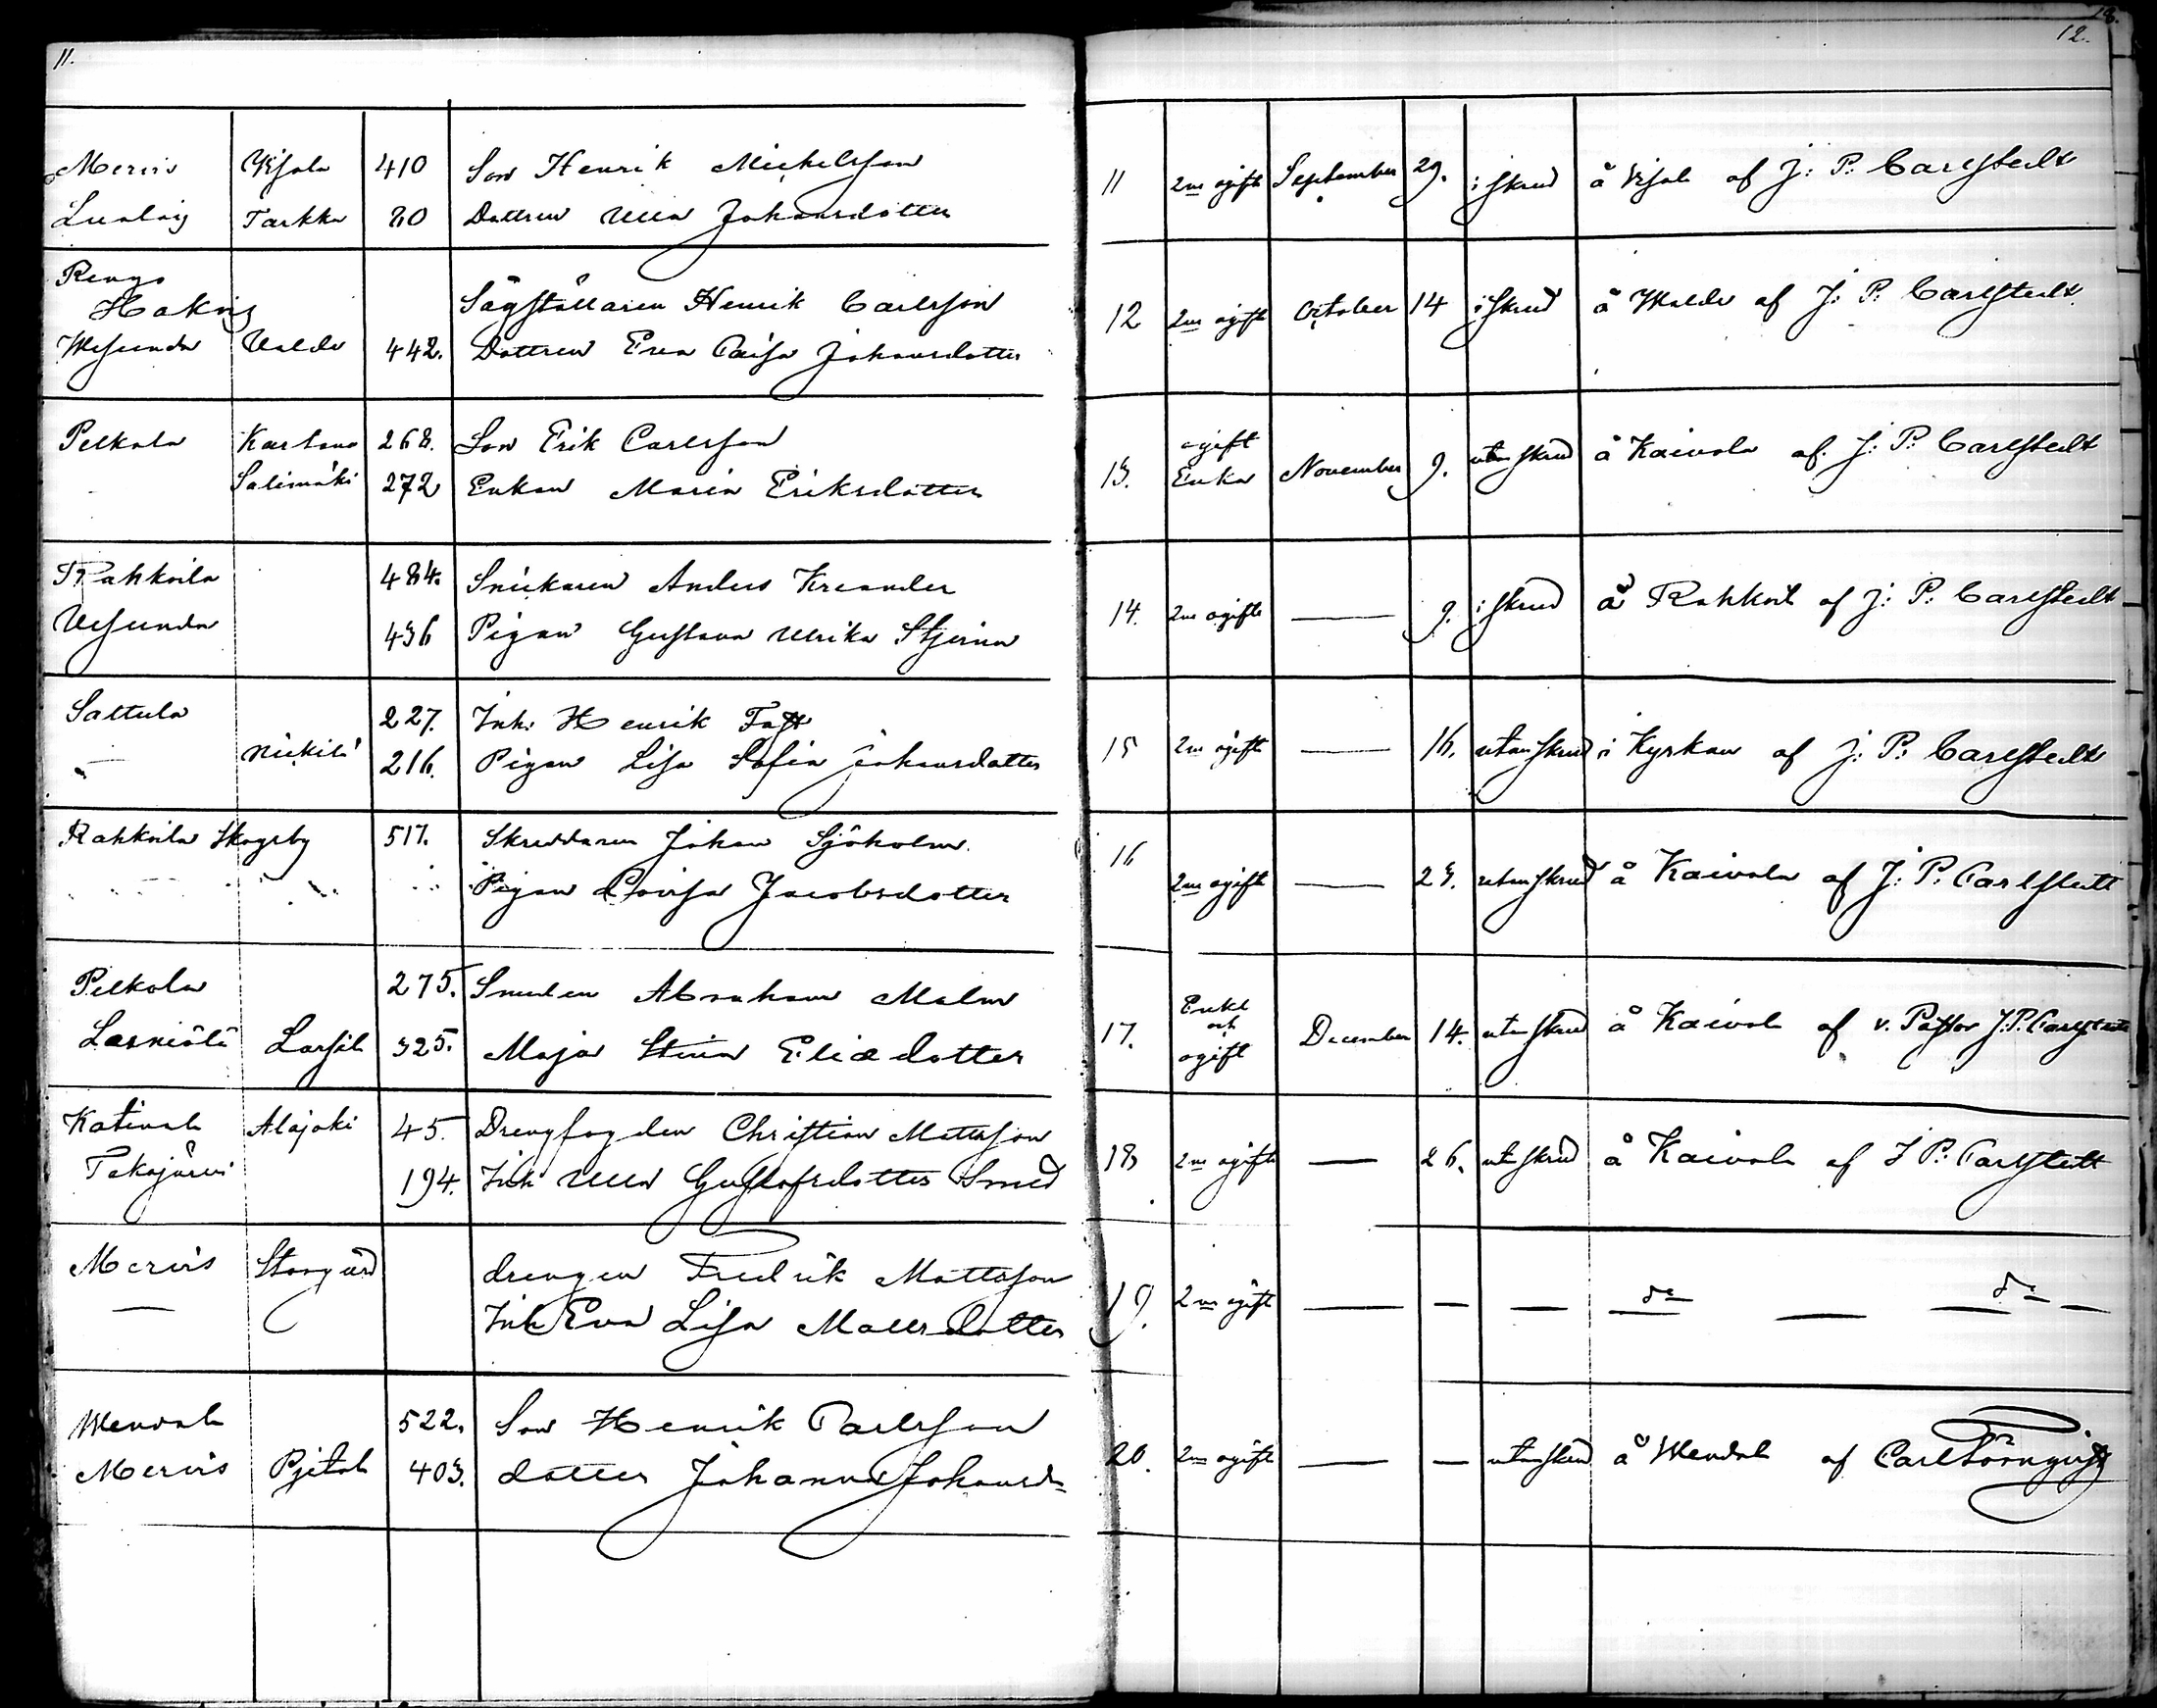 11.
Mervis Ujsala 410 Son Henrik Michelsson
Lunkis Tarkka 80 Dottren Ulla Johansdotter
Rengo
Hakois Sågställaren Henrik Carlsson
Wesunda Ualde 442. Dottren Eva Caisa Johansdotter
Pelkola Kartano 268. Son Erik Carlsson
Salimäki 272 Enkan Maria Eriksdotter
Rahkoila 484. Snickaren Anders Kreander
Vesunda 436 Pigan Gustava Ulrika Stjerna
Sattula 227. Inh. Henrik Fast
— Nickilä 216. Pigan Lisa Sofia Johansdotter
Rahkoila Skogsby 517. Skreddaren Johan Sjöholm.
Pigan Lovisa Jacobsdotter
Pelkola 275. Smeden Abraham Malm
Lasniölä Larsila 325. Maja Stina Eliædotter
Katinala Alajoki 45. Drengfogden Christian Mattsson
Takajärvi 194. Inh Ulla Gustafsdotter Smed
Mervis Storgård drengen Fredrik Mattsson
— Inh Eva Lisa Mattsdotter
Wendala 522. Son Henrik Carlsson
Mervis Pjetola 403. dotter Johanna Johansd
18.
12.
11 2ne ogifte September 29. i skrud å Ujsala af J. P. Carlstedt
12 2ne ogifte October 14 i skrud å Walde af J. P. Carlstedt
ogift
13. Enka November 9. utan skrud å Kaivola af J. P. Carlstedt
14. 2ne ogifte — 9. i skrud å Rahkoila af J. P. Carlstedt
15 2ne ogifte — 16. utan skrud i Kyrkan af J. P. Carlstedt
16 2ne ogifte — 23. utan skrud å Kaivola af J. P. Carlstett
Enkl
och
17. ogift December 14. utan skrud å Kaivola af v. Pastor J. P. Carlstett
18 2ne ogifte — 26. utan skrud å Kaivola af J P. Carlstett
19. 2ne ogifte — — — do — do —
20. 2ne ogifte — — utan skrud å Wendala af Carl Törnqvist